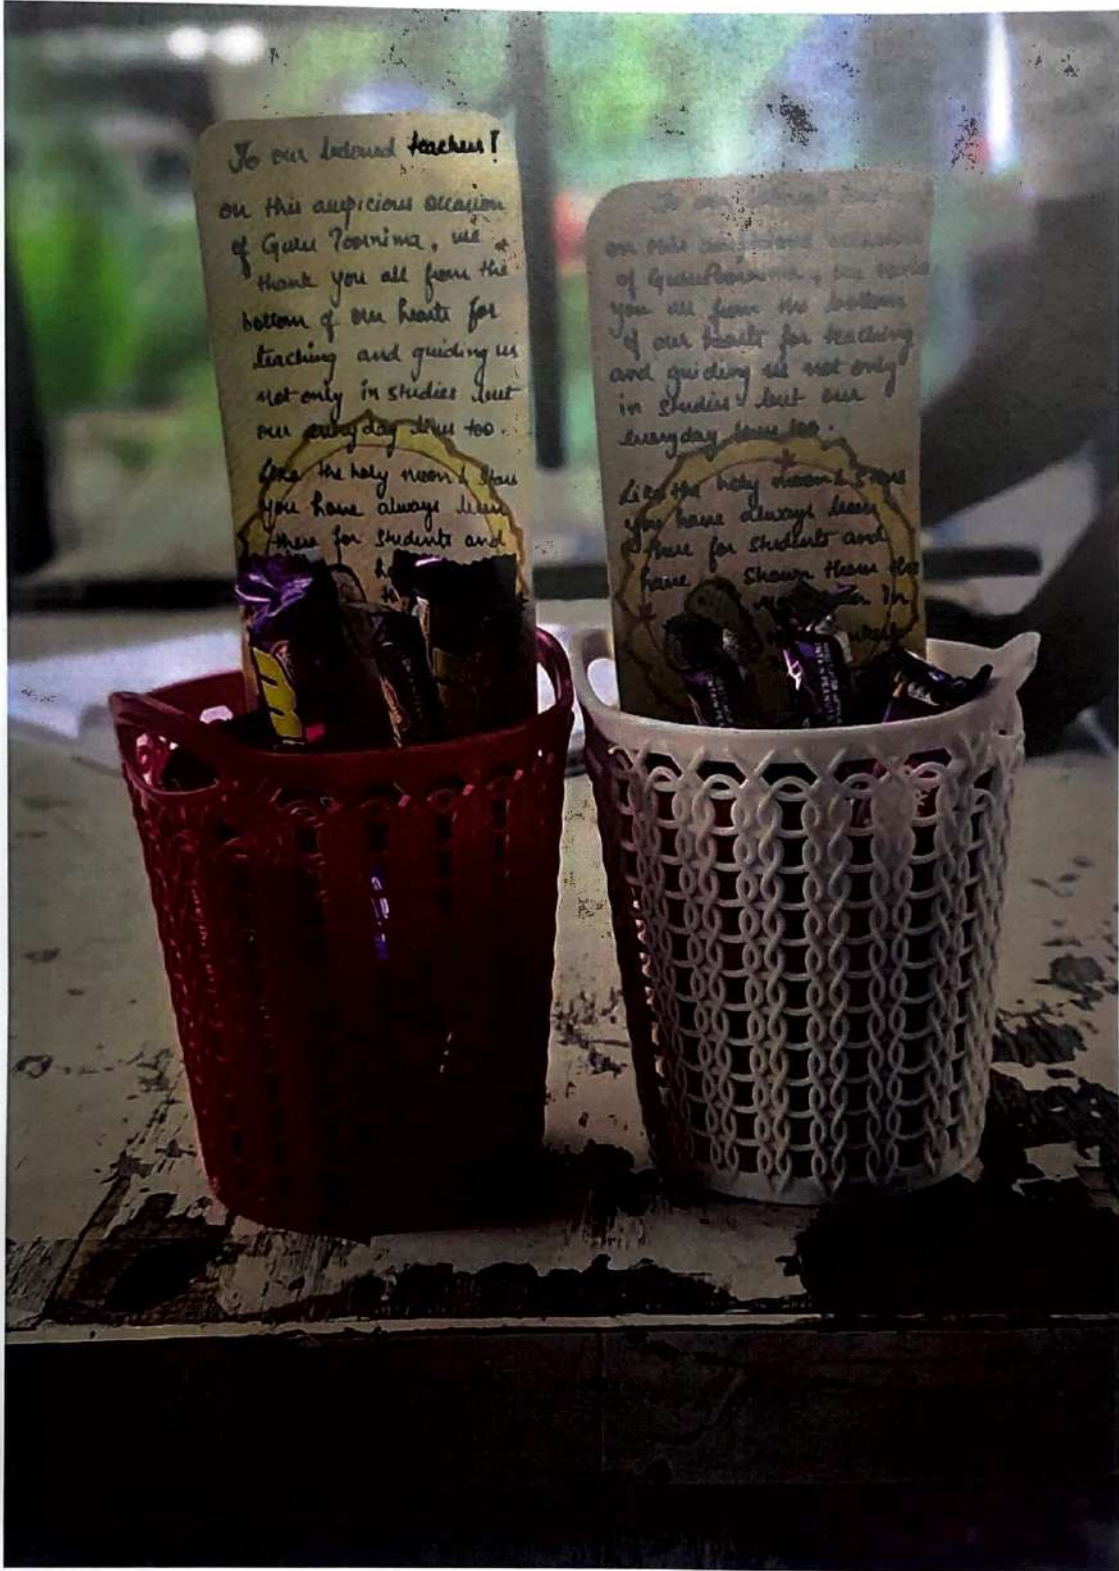 To our beloved teachers!
on this auspicious occasion
of Guru Poornima, we
thank you all from the
bottom of our hearts for
teaching and guiding us
not only in studies but
our everyday lives too.
Like the holy moon & stars
you have always been
there for students and
To our beloved
on this auspicious occasion
of Guru Poornima, we thank
you all from the bottom
of our hearts for teaching
and guiding us not only
in studies but our
everyday lives too.
Like the holy moon & stars
you have always been
there for students and
have shown them the
in